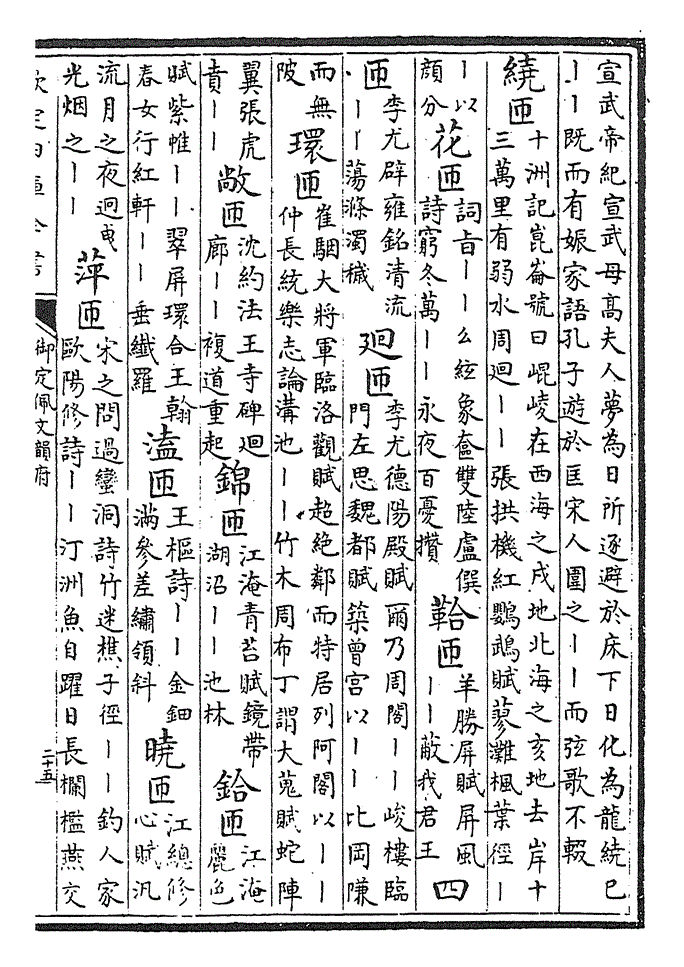 宣武帝紀宣武母髙夫人夢為日所逐避於床下日化為龍繞已
丨丨既而有娠家語孔子遊於匡宋人圍之丨丨而弦歌不輟
繞匝
十洲記崑崙號曰崐崚在西海之戌地北海之亥地去岸十
三萬里有弱水周迴丨丨張拱機紅鸚鵡賦蓼灘楓葉徑丨
丨以
顔分
花匝
詞旨丨丨么絃象奩雙陸盧僎
詩窮冬萬丨丨永夜百憂攢
鞈匝
羊勝屏賦屏風
丨丨蔽我君王
四
匝
李尤辟雍銘清流
丨丨蕩滌濁穢
迴匝
李尤德陽殿賦爾乃周閣丨丨峻樓臨
門左思魏都賦築曾宮以丨丨比岡隒
而無
陂
環匝
崔駰大將軍臨洛觀賦超絶鄰而特居列阿閣以丨丨
仲長統樂志論溝池丨丨竹木周布丁謂大蒐賦蛇陣
翼張虎
賁丨丨
敞匝
沈約法王寺碑迴
廊丨丨複道重起
錦匝
江淹青苔賦鏡帶
湖沼丨丨池林
鉿匝
江淹
麗色
賦紫帷丨丨翠屏環合王翰
春女行紅軒丨丨垂纖羅
溘匝
王樞詩丨丨金鈿
滿參差繡領斜
曉匝
江總修
心賦汎
流月之夜迥曳
光烟之丨丨
萍匝
宋之問過蠻洞詩竹迷樵子徑丨丨釣人家
歐陽修詩丨丨汀洲魚自躍日長欄檻燕交
欽定四庫全書
御定佩文韻府
二十五